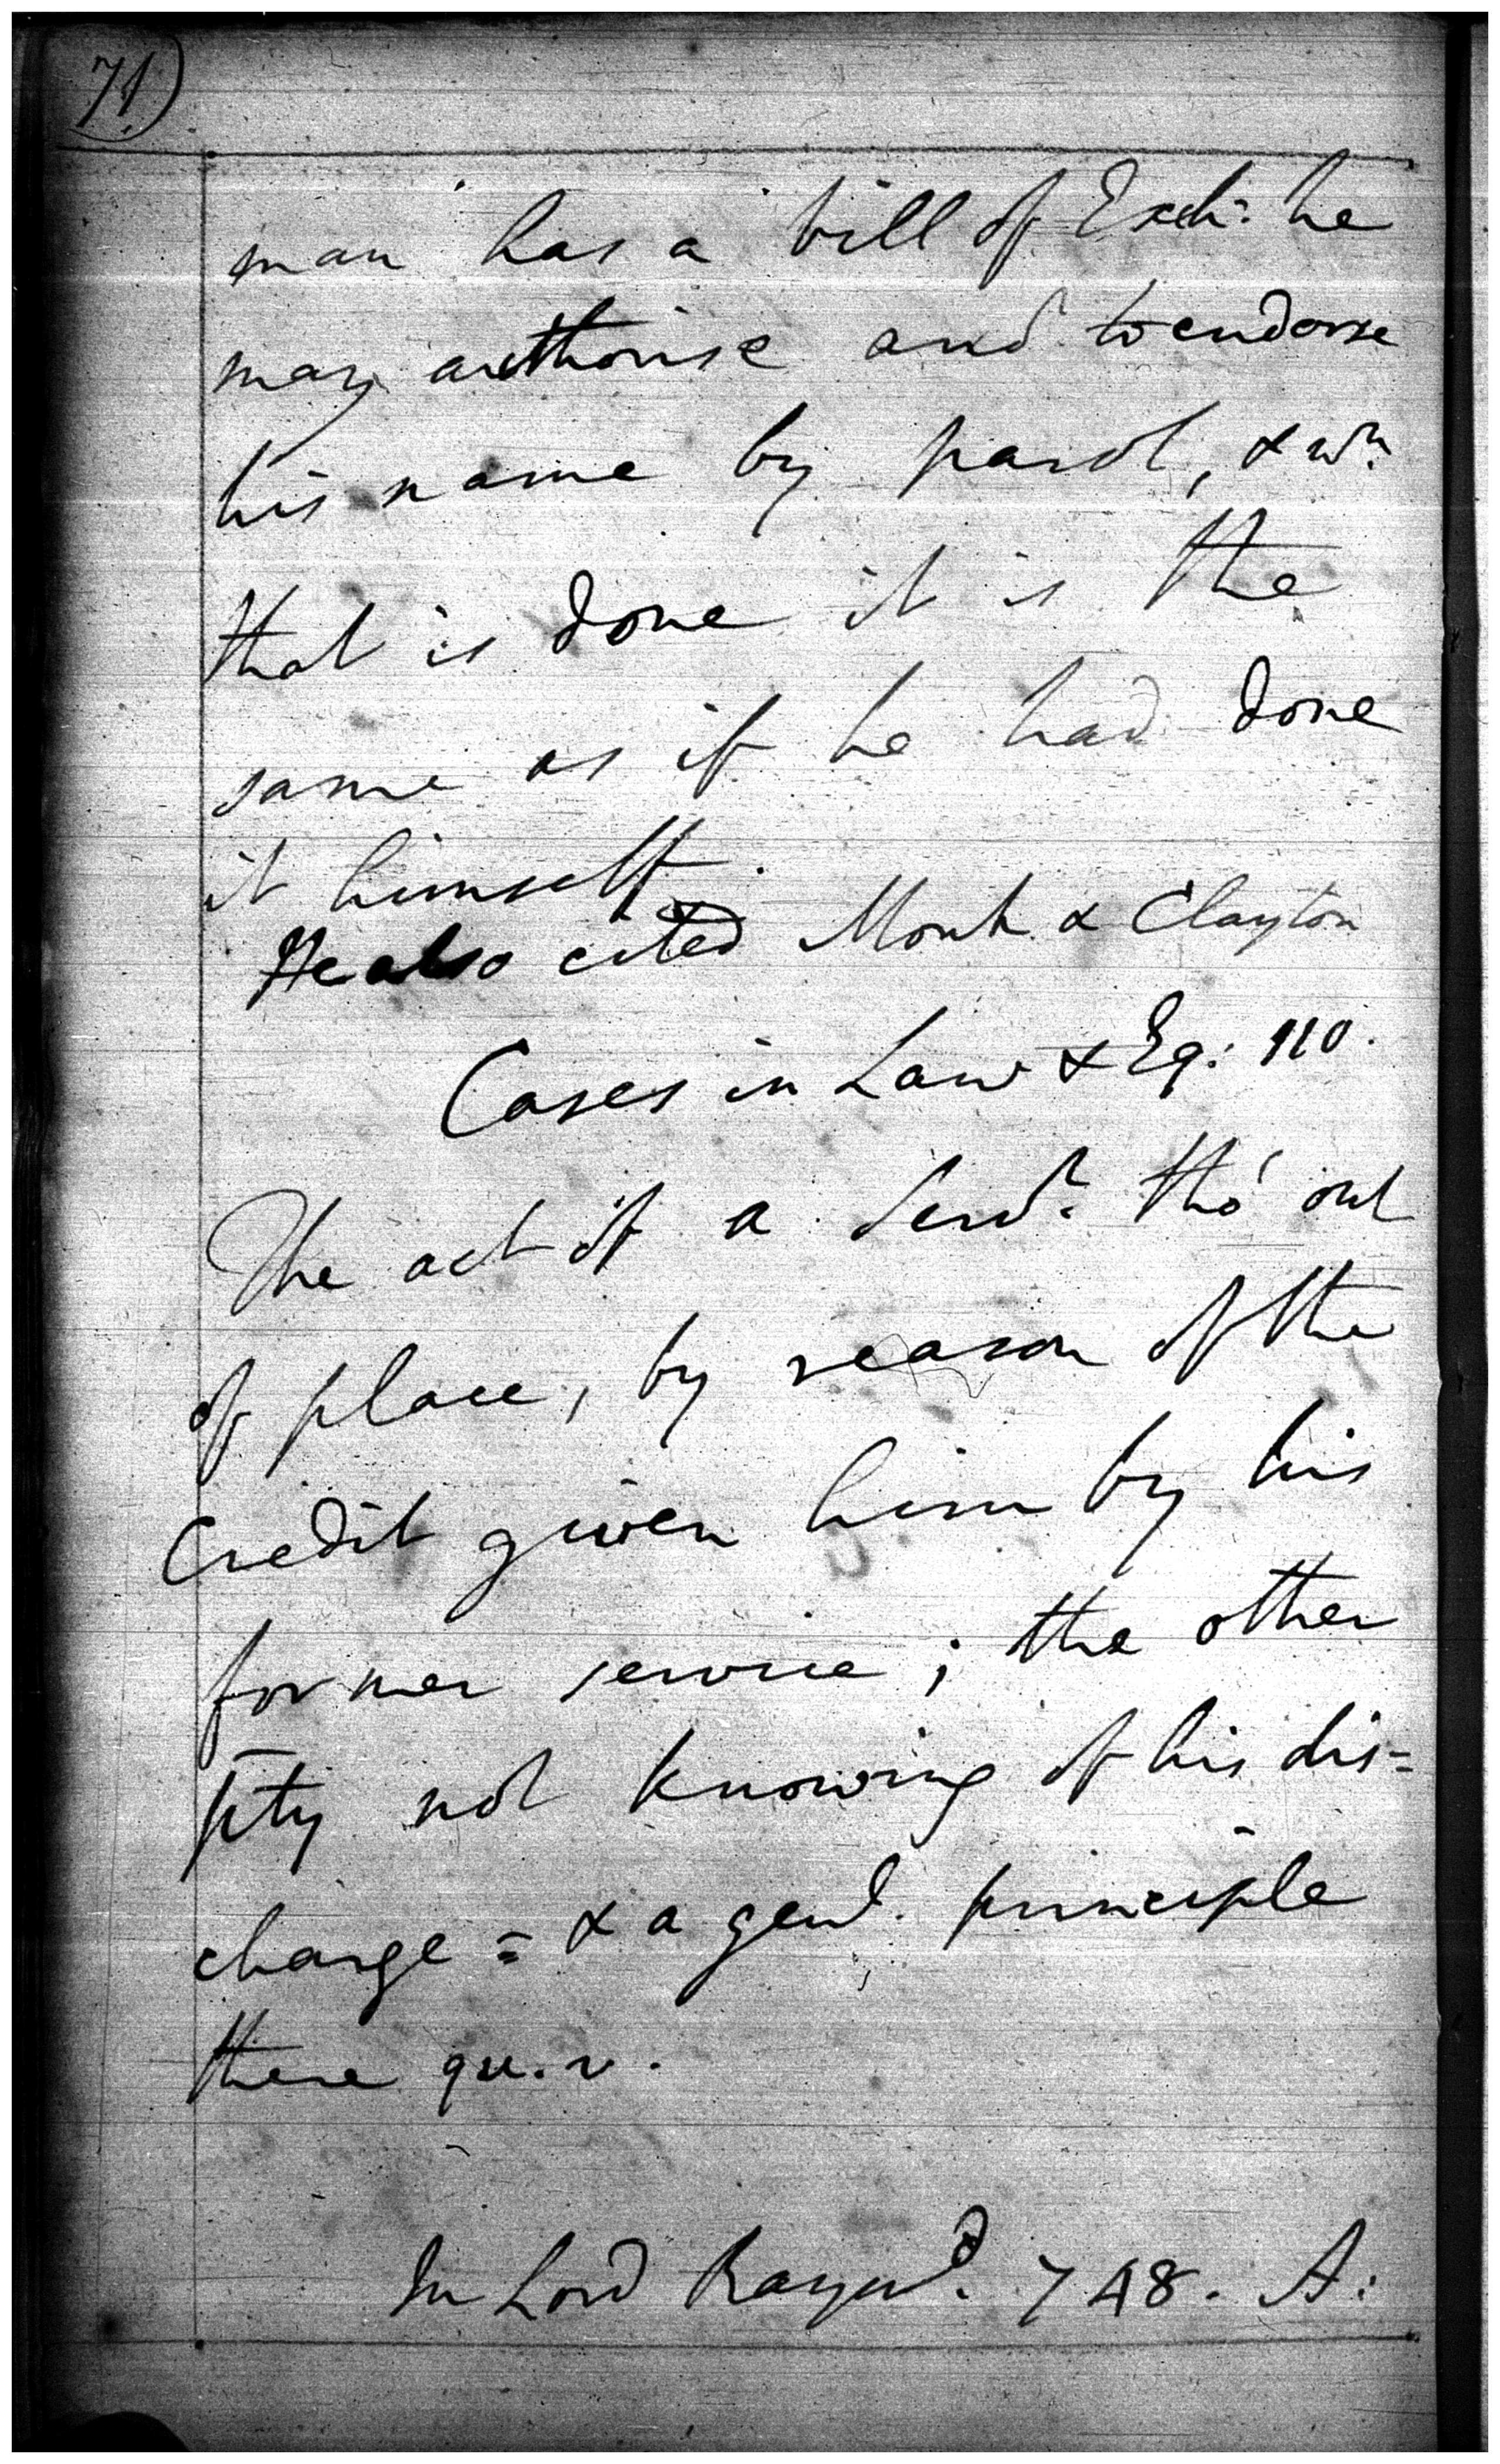 71)
man has a bill of Exch: he
may authorise and to endorse
his name by parol, & wn.
that is done it is the
same as if he had done
it himself.
He also cited Monk & Clayton
Cases in Law & Eq: 110.
The act of a Servt. tho' out
of place, by reason of the
Credit given him by his
former service; the other
pty not knowing of his dis=
charge = & a genl. principle
there qu. v.
In Lord Raymd. 748. A: